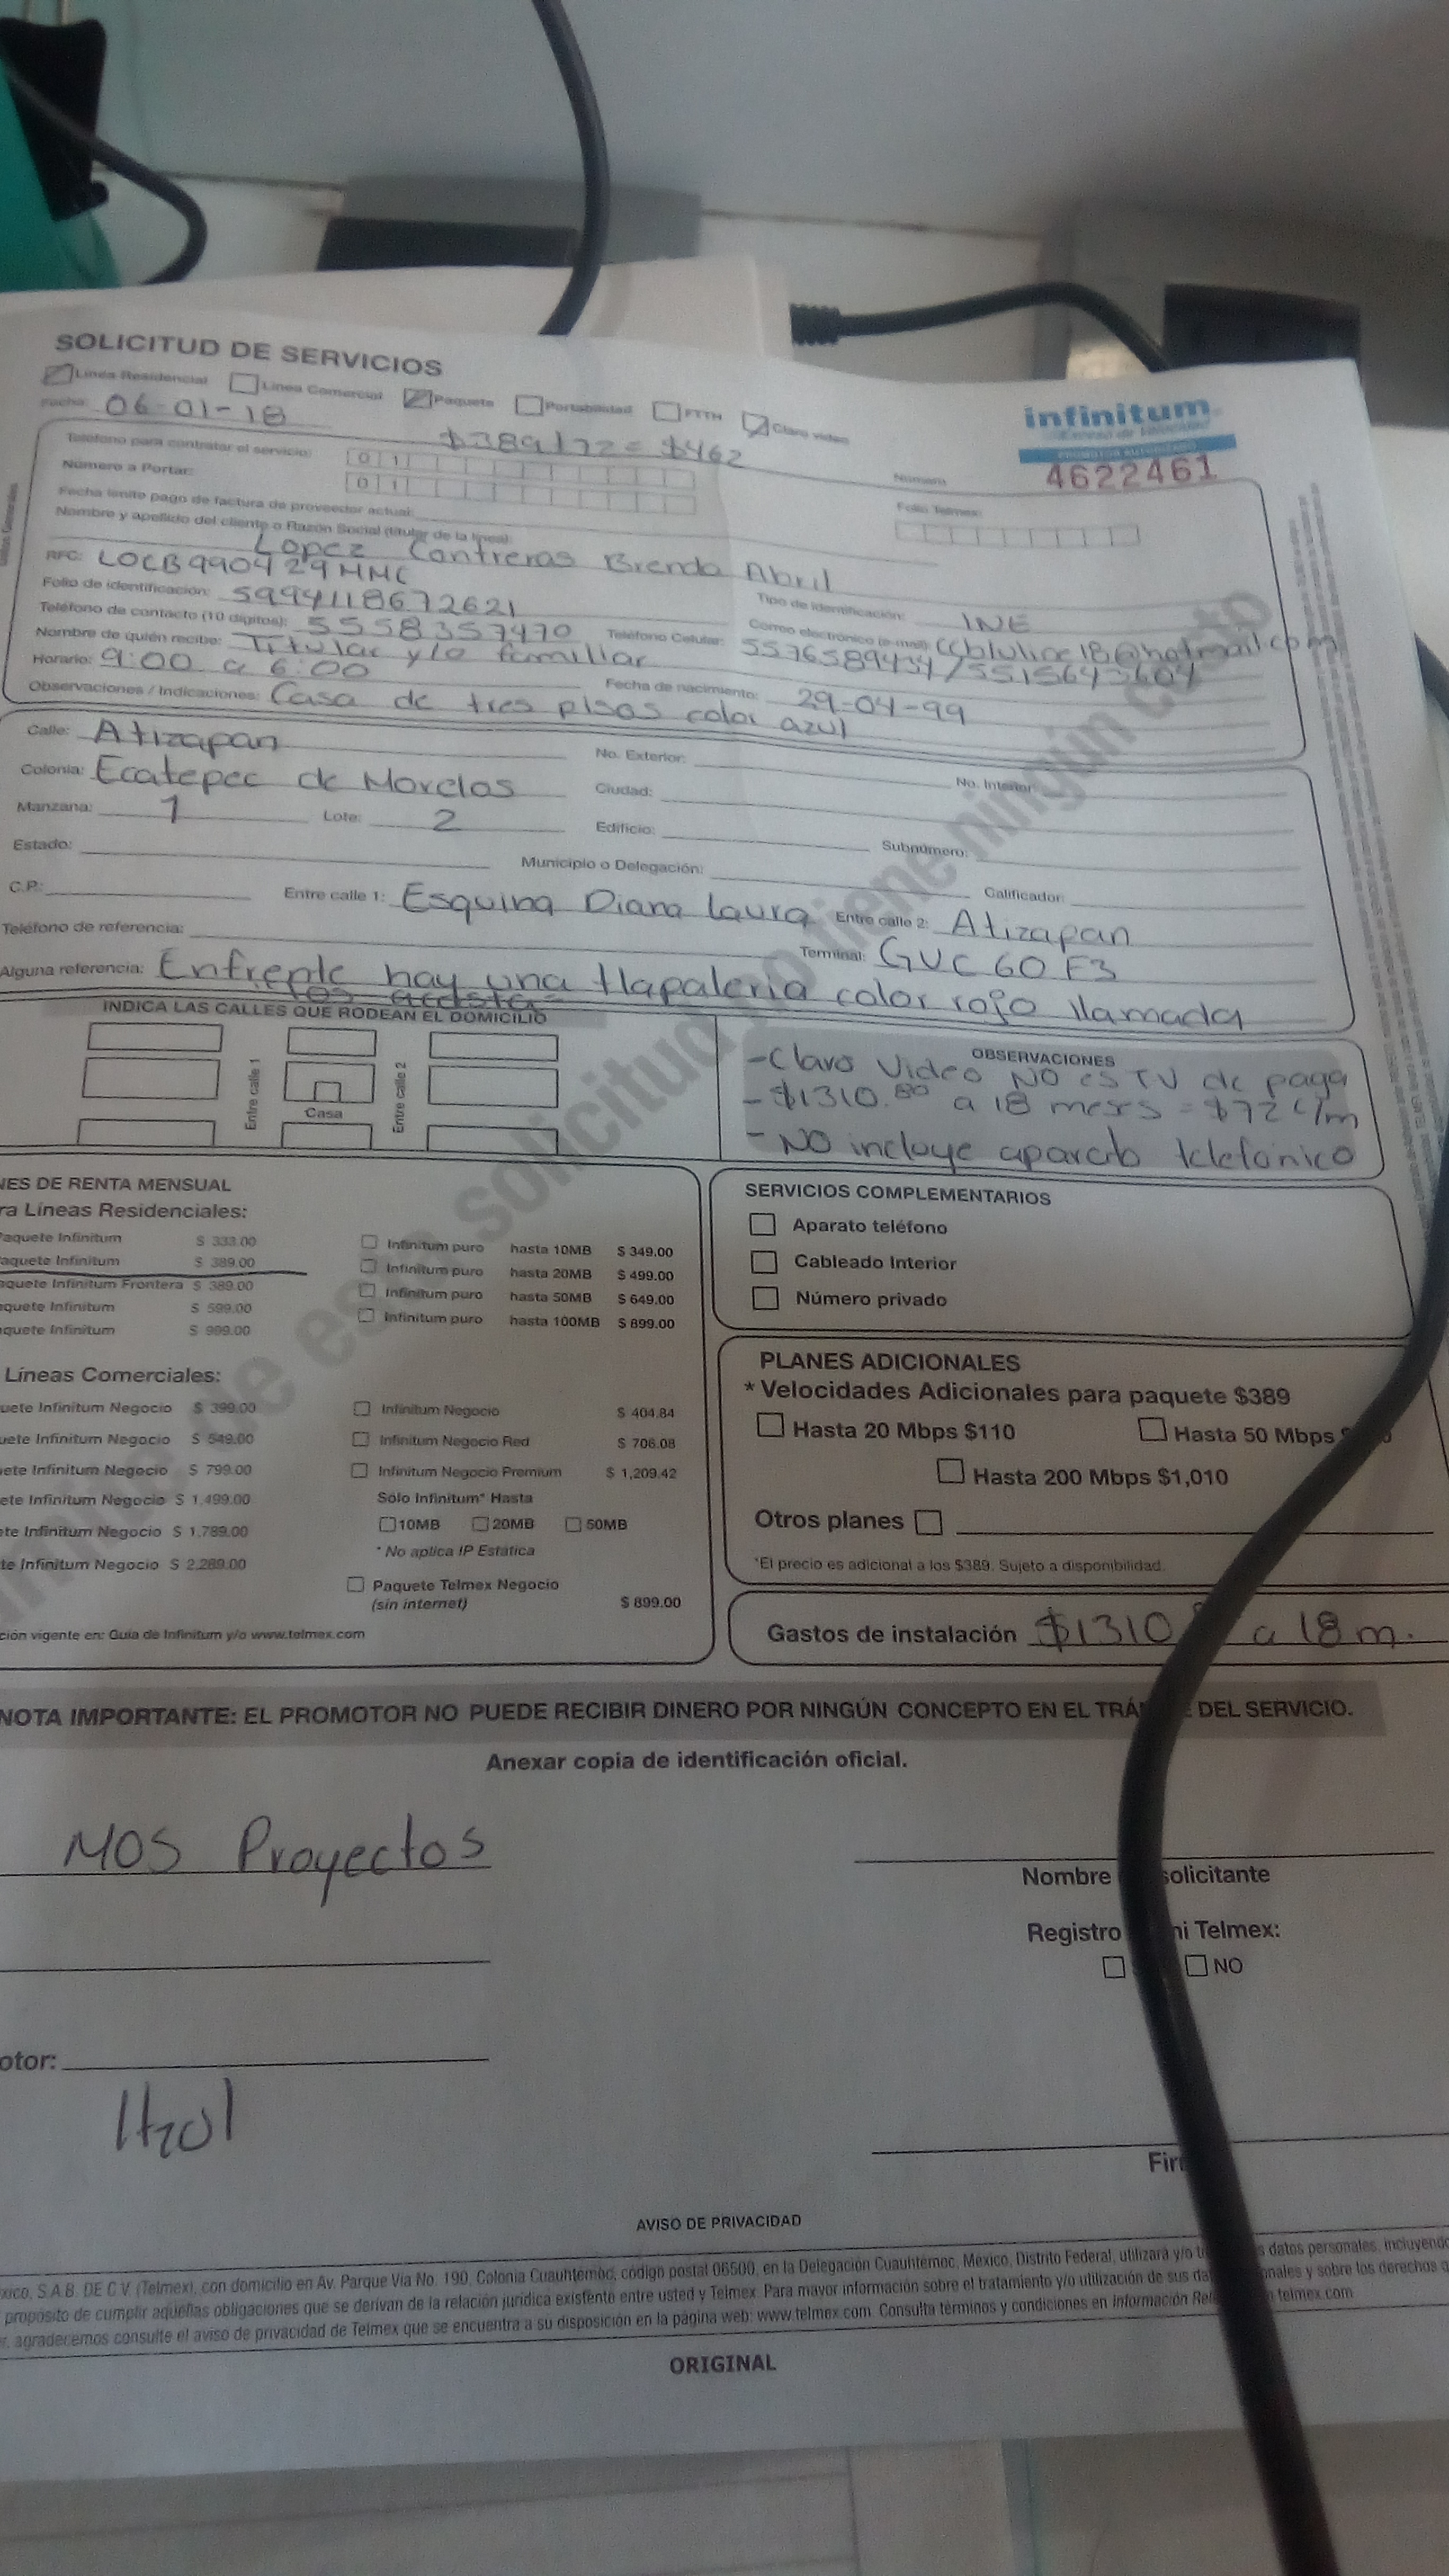 SOLICITUD DE SERVICIOS
Línea Residencial Línea Comercial Paquete Portabilidad FTTH Claro video
infinitum
PROMOTOR AUTORIZADO
Fecha: 06-01-18
$389+72= $462
4622461
Teléfono para contratar el servicio: 01
Número a Portar: 01
Número
Folio Telmex:
Fecha límite pago de factura de proveedor actual:
Nombre y apellido del cliente o Razón Social (titular de la línea):
Lopez Contreras Brenda Abril
RFC: LOCB990429MMC
Folio de identificación: 5994118672621
Tipo de identificación: INE
Teléfono de contacto (10 dígitos): 5558357470 Teléfono Celular: 5576589434/5515643604
Correo electrónico (e-mail):
Nombre de quién recibe: Titular y/o familiar
Horario: 9:00 a 6:00
Fecha de nacimiento: 29-04-99
Observaciones / Indicaciones: Casa de tres pisos color azul
Calle: Atizapan No. Exterior: No. Interior:
Colonia: Ecatepec de Morelos Ciudad:
Manzana: 1 Lote: 2 Edificio: Subnúmero:
Estado: Municipio o Delegación:
C.P.: Entre calle 1: Esquina Diana Laura Entre calle 2: Atizapan
Calificador:
Teléfono de referencia: Terminal: GUC60F3
Alguna referencia: Enfrente hay una tlapaleria color rojo llamada
INDICA LAS CALLES QUE RODEAN EL DOMICILIO
Entre calle 1
Casa
Entre calle 2
OBSERVACIONES
-Claro Video NO es TV de paga
-$1310.80 a 18 meses = $72 c/m
-NO incluye aparato telefonico
NES DE RENTA MENSUAL
ra Líneas Residenciales:
aquete Infinitum $ 333.00
aquete Infinitum $ 389.00
aquete Infinitum Frontera $ 389.00
quete Infinitum $ 599.00
quete Infinitum $ 999.00
Infinitum puro hasta 10MB $ 349.00
Infinitum puro hasta 20MB $ 499.00
Infinitum puro hasta 50MB $ 649.00
Infinitum puro hasta 100MB $ 899.00
Líneas Comerciales:
uete Infinitum Negocio $ 399.00
uete Infinitum Negocio $ 549.00
ete Infinitum Negocio $ 799.00
ete Infinitum Negocio $ 1,499.00
te Infinitum Negocio $ 1,789.00
te Infinitum Negocio $ 2,289.00
Infinitum Negocio $ 404.84
Infinitum Negocio Red $ 706.08
Infinitum Negocio Premium $ 1,209.42
Sólo Infinitum* Hasta
10MB 20MB 50MB
* No aplica IP Estática
Paquete Telmex Negocio
(sin internet) $ 899.00
ción vigente en: Guía de Infinitum y/o www.telmex.com
SERVICIOS COMPLEMENTARIOS
Aparato teléfono
Cableado Interior
Número privado
PLANES ADICIONALES
* Velocidades Adicionales para paquete $389
Hasta 20 Mbps $110 Hasta 50 Mbps
Hasta 200 Mbps $1,010
Otros planes
*El precio es adicional a los $389. Sujeto a disponibilidad.
Gastos de instalación $1310 a 18 m.
NOTA IMPORTANTE: EL PROMOTOR NO PUEDE RECIBIR DINERO POR NINGÚN CONCEPTO EN EL TRÁ DEL SERVICIO.
Anexar copia de identificación oficial.
MOS Proyectos
Nombre solicitante
Registro mi Telmex:
NO
otor:
Itzol
Fir
AVISO DE PRIVACIDAD
xico, S.A.B. DE C.V. (Telmex), con domicilio en Av. Parque Vía No. 190, Colonia Cuauhtémoc, código postal 06500, en la Delegación Cuauhtémoc, México, Distrito Federal, utilizará y/o datos personales, incluyendo
propósito de cumplir aquellas obligaciones que se derivan de la relación jurídica existente entre usted y Telmex. Para mayor información sobre el tratamiento y/o utilización de sus da onales y sobre los derechos
r, agradecemos consulte el aviso de privacidad de Telmex que se encuentra a su disposición en la página web: www.telmex.com. Consulta términos y condiciones en Información Rel telmex.com
ORIGINAL
de esta solicitud no tiene ningún costo